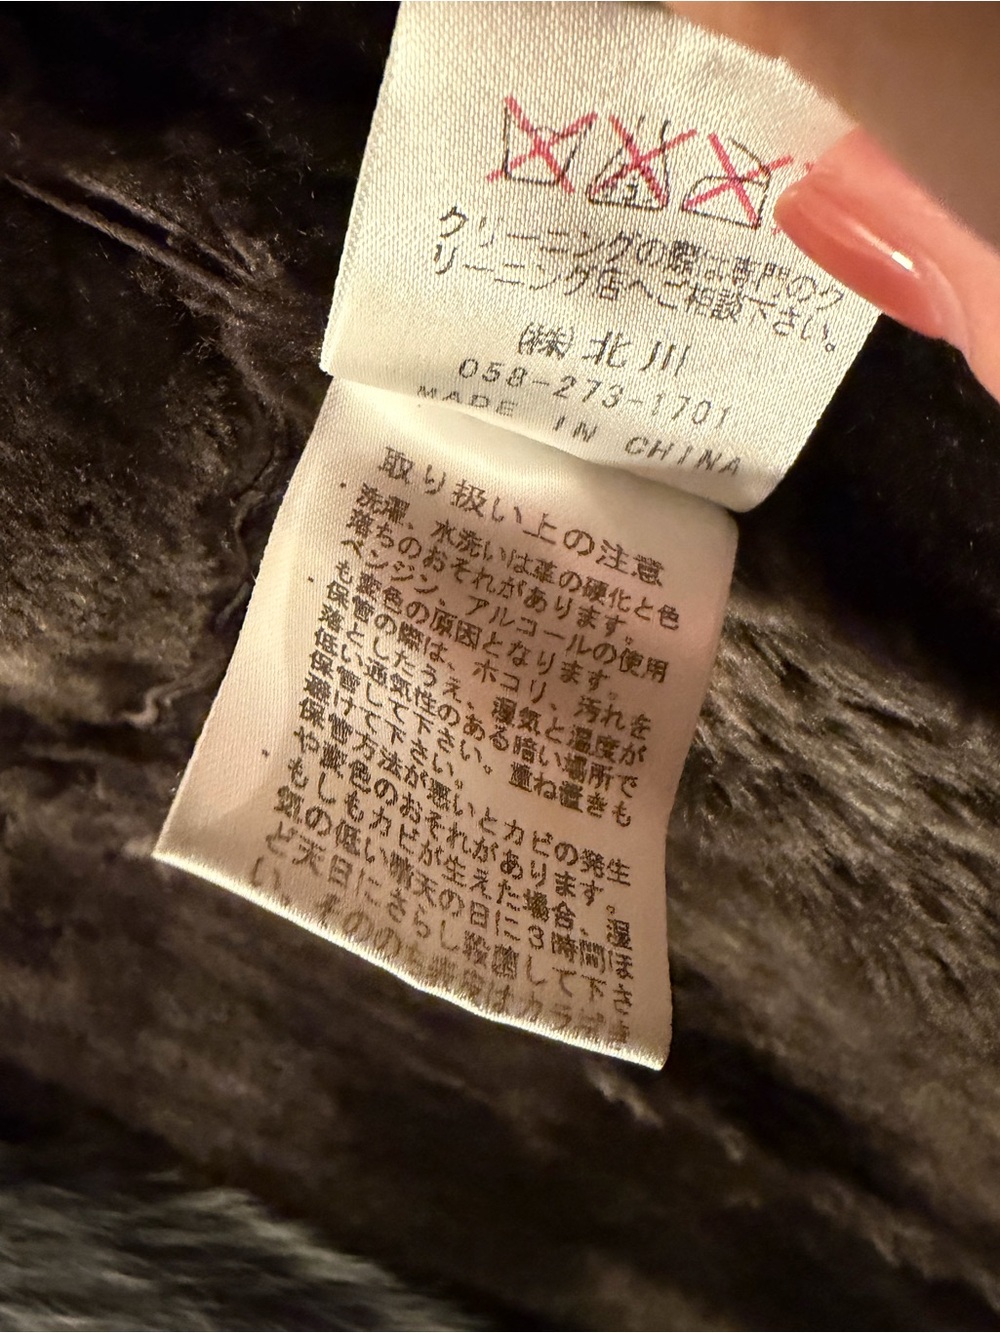 クリーニングの際は専門のク
リーニング店へご相談下さい。
(株)北川
058-273-1701
MADE IN CHINA
取り扱い上の注意
・洗濯、水洗いは革の硬化と色
落ちのおそれがあります。
ベンジン、アルコールの使用
も変色の原因となります。
・保管の際は、ホコリ、汚れを
落としたうえ、湿気と温度が
低い通気性のある暗い場所で
保管して下さい。重ね置きも
避けて下さい。
保管方法が悪いとカビの発生
や変色のおそれがあります。
・もしもカビが生えた場合、湿
気の低い晴天の日に3時間ほ
ど天日にさらし殺菌して下さ
い。その